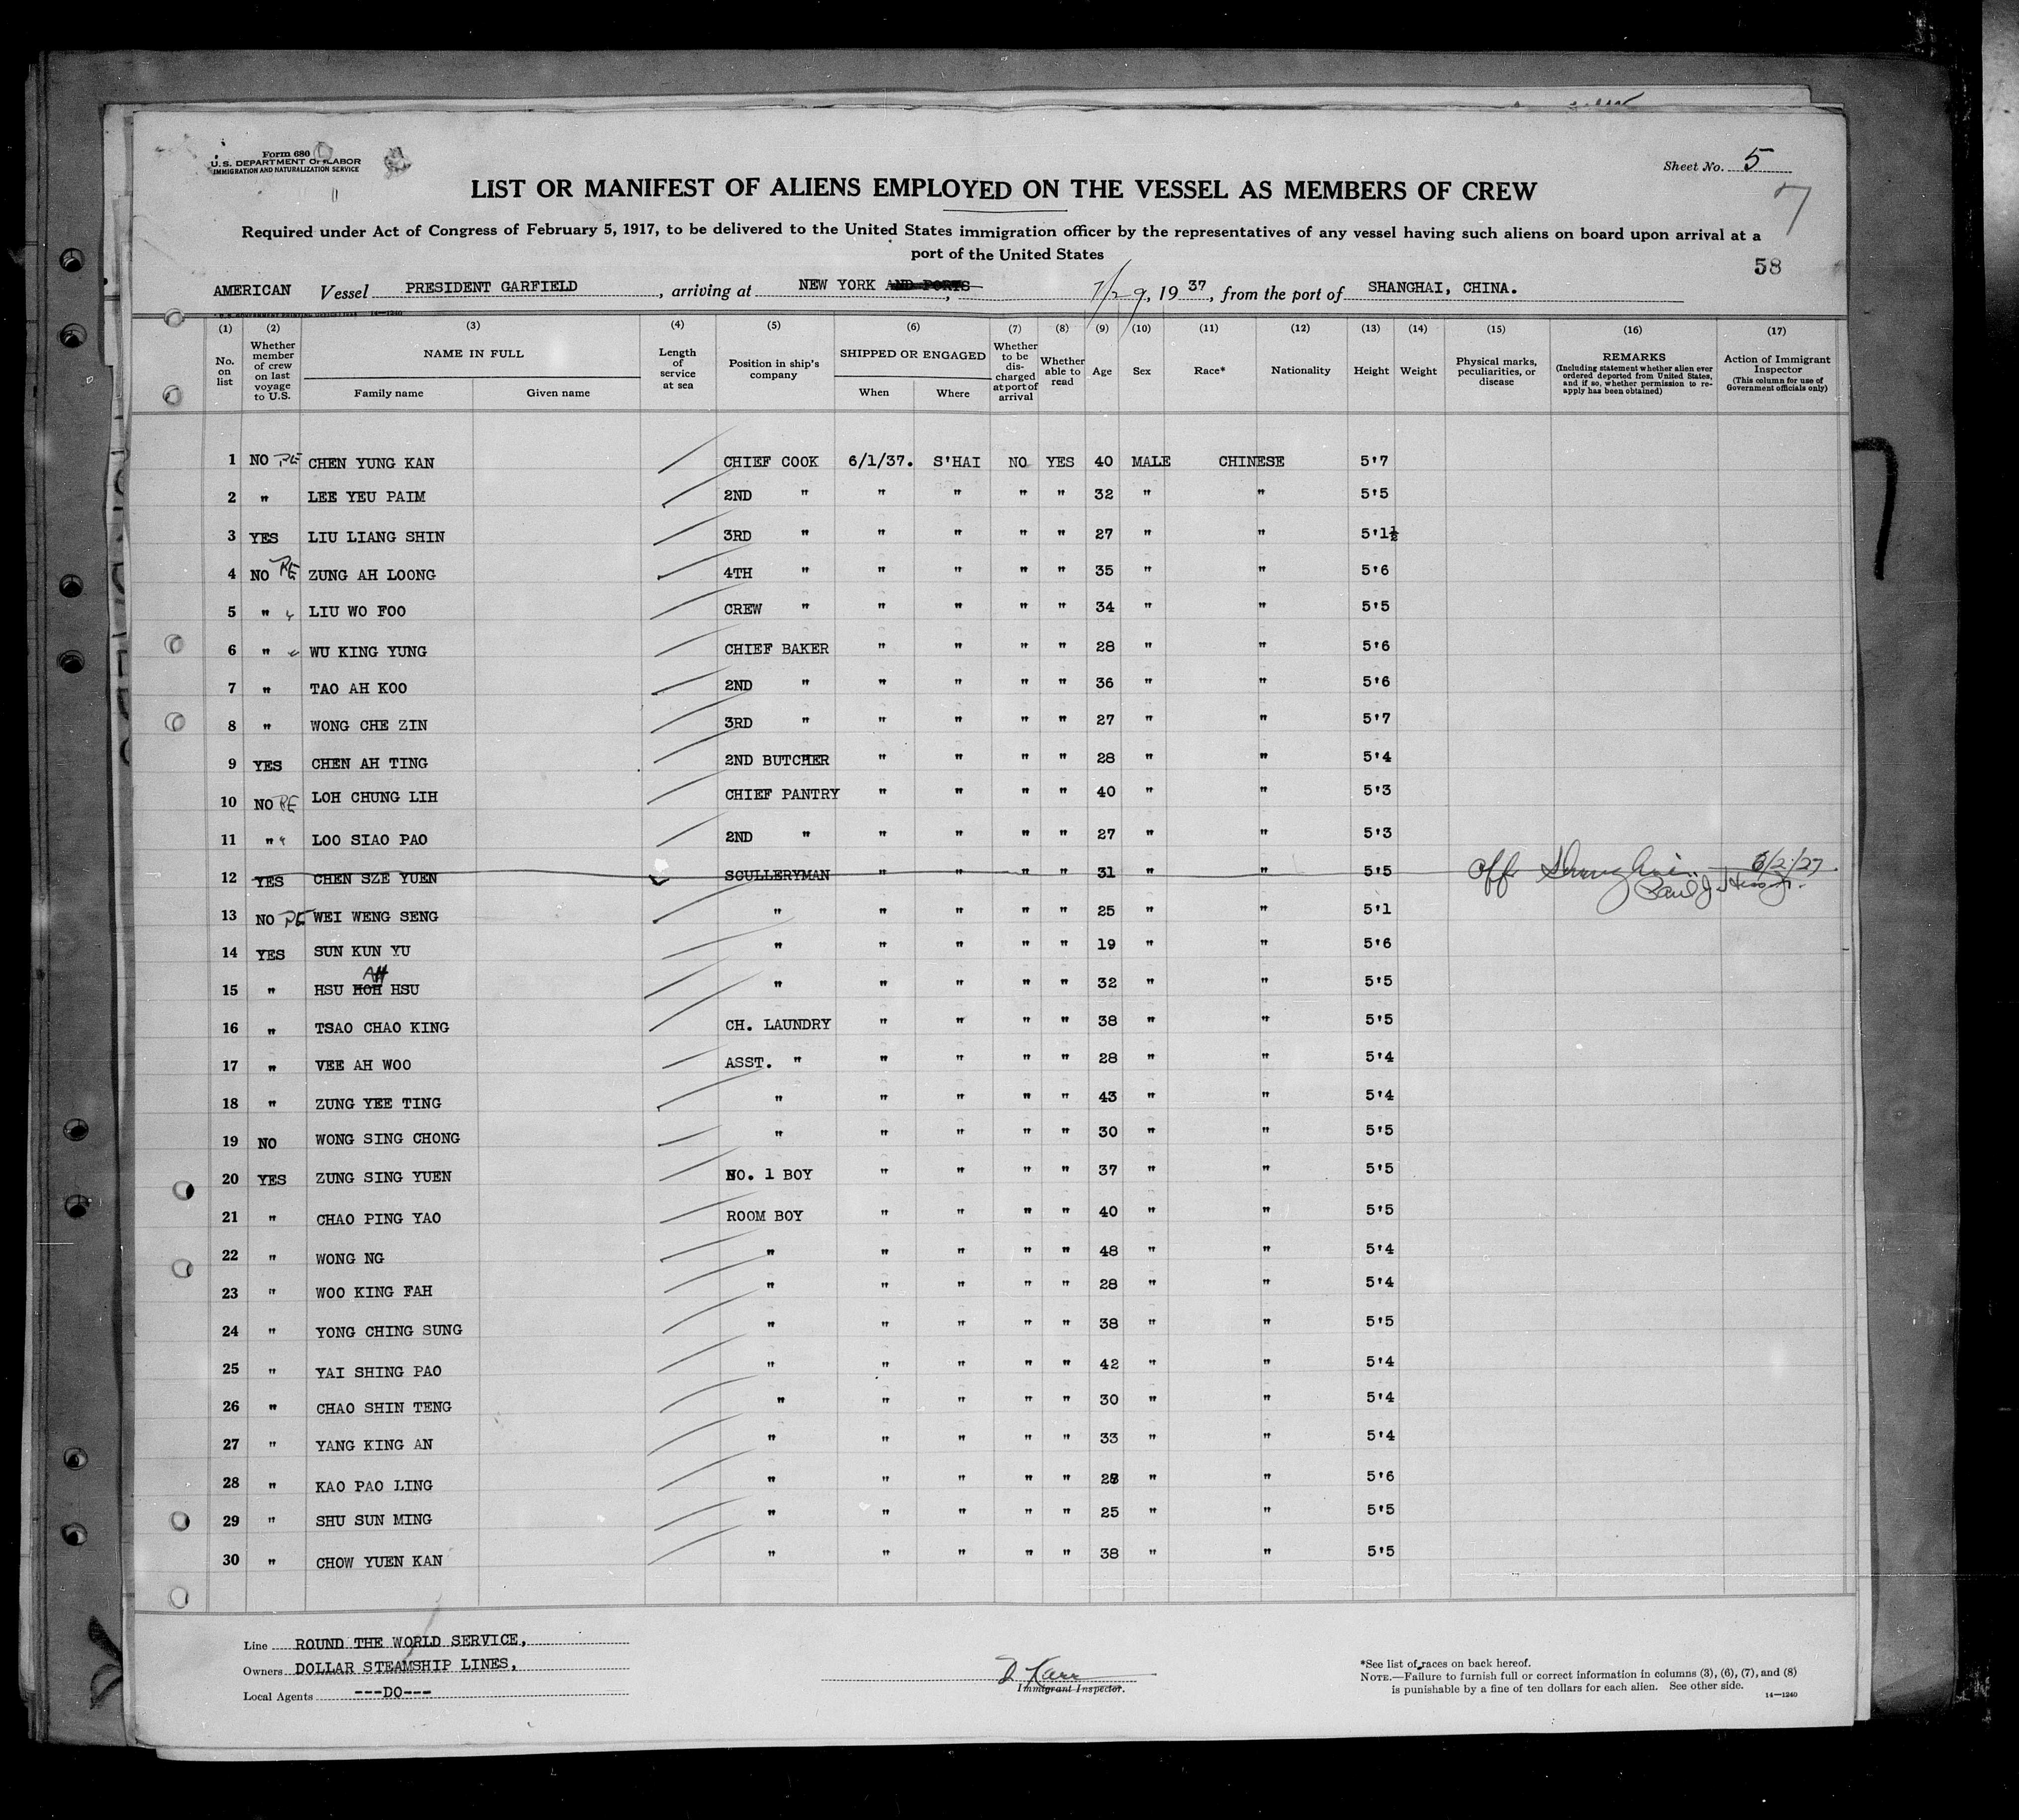 Form 680
U.S. DEPARTMENT OF LABOR
IMMIGRATION AND NATURALIZATION SERVICE
Sheet No. 5
7
LIST OR MANIFEST OF ALIENS EMPLOYED ON THE VESSEL AS MEMBERS OF CREW
Required under Act of Congress of February 5, 1917, to be delivered to the United States immigration officer by the representatives of any vessel having such aliens on board upon arrival at a
port of the United States
58
AMERICAN Vessel PRESIDENT GARFIELD, arriving at NEW YORK AND PORTS, 7/29, 1937, from the port of SHANGHAI, CHINA.
(1) (2) (3) (4) (5) (6) (7) (8) (9) (10) (11) (12) (13) (14) (15) (16) (17)
No. on list
Whether member of crew on last voyage to U.S.
NAME IN FULL
Family name Given name
Length of service at sea
Position in ship's company
SHIPPED OR ENGAGED
When Where
Whether to be discharged at port of arrival
Whether able to read
Age Sex Race* Nationality Height Weight
Physical marks, peculiarities, or disease
REMARKS
(Including statement whether alien ever ordered deported from United States, and if so, whether permission to reapply has been obtained)
Action of Immigrant Inspector
(This column for use of Government officials only)
1 NO RE CHEN YUNG KAN CHIEF COOK 6/1/37. S'HAI NO YES 40 MALE CHINESE 5'7
2 " LEE YEU PAIM 2ND " " " " " 32 " " 5'5
3 YES LIU LIANG SHIN 3RD " " " " " 27 " " 5'1½
4 NO RE ZUNG AH LOONG 4TH " " " " " 35 " " 5'6
5 " " LIU WO FOO CREW " " " " " 34 " " 5'5
6 " " WU KING YUNG CHIEF BAKER " " " " 28 " " 5'6
7 " TAO AH KOO 2ND " " " " " 36 " " 5'6
8 " WONG CHE ZIN 3RD " " " " " 27 " " 5'7
9 YES CHEN AH TING 2ND BUTCHER " " " " 28 " " 5'4
10 NO RE LOH CHUNG LIH CHIEF PANTRY " " " " 40 " " 5'3
11 " " LOO SIAO PAO 2ND " " " " " 27 " " 5'3
12 YES CHEN SZE YUEN SCULLERYMAN " " " " 31 " " 5'5 Off Shanghai
13 NO RE WEI WENG SENG " " " " " 25 " " 5'1
14 YES SUN KUN YU " " " " " 19 " " 5'6
AH
15 " HSU HOH HSU " " " " " 32 " " 5'5
16 " TSAO CHAO KING CH. LAUNDRY " " " " 38 " " 5'5
17 " VEE AH WOO ASST. " " " " " 28 " " 5'4
18 " ZUNG YEE TING " " " " " 43 " " 5'4
19 NO WONG SING CHONG " " " " " 30 " " 5'5
20 YES ZUNG SING YUEN NO. 1 BOY " " " " 37 " " 5'5
21 " CHAO PING YAO ROOM BOY " " " " 40 " " 5'5
22 " WONG NG " " " " " 48 " " 5'4
23 " WOO KING FAH " " " " " 28 " " 5'4
24 " YONG CHING SUNG " " " " " 38 " " 5'5
25 " YAI SHING PAO " " " " " 42 " " 5'4
26 " CHAO SHIN TENG " " " " " 30 " " 5'4
27 " YANG KING AN " " " " " 33 " " 5'4
28 " KAO PAO LING " " " " " " " 5'6
29 " SHU SUN MING " " " " " 25 " " 5'5
30 " CHOW YUEN KAN " " " " " 38 " " 5'5
Line ROUND THE WORLD SERVICE,
Owners DOLLAR STEAMSHIP LINES,
Local Agents ---DO---
D. Karr
Immigrant Inspector.
*See list of races on back hereof.
NOTE.—Failure to furnish full or correct information in columns (3), (6), (7), and (8)
is punishable by a fine of ten dollars for each alien. See other side.
14—1240